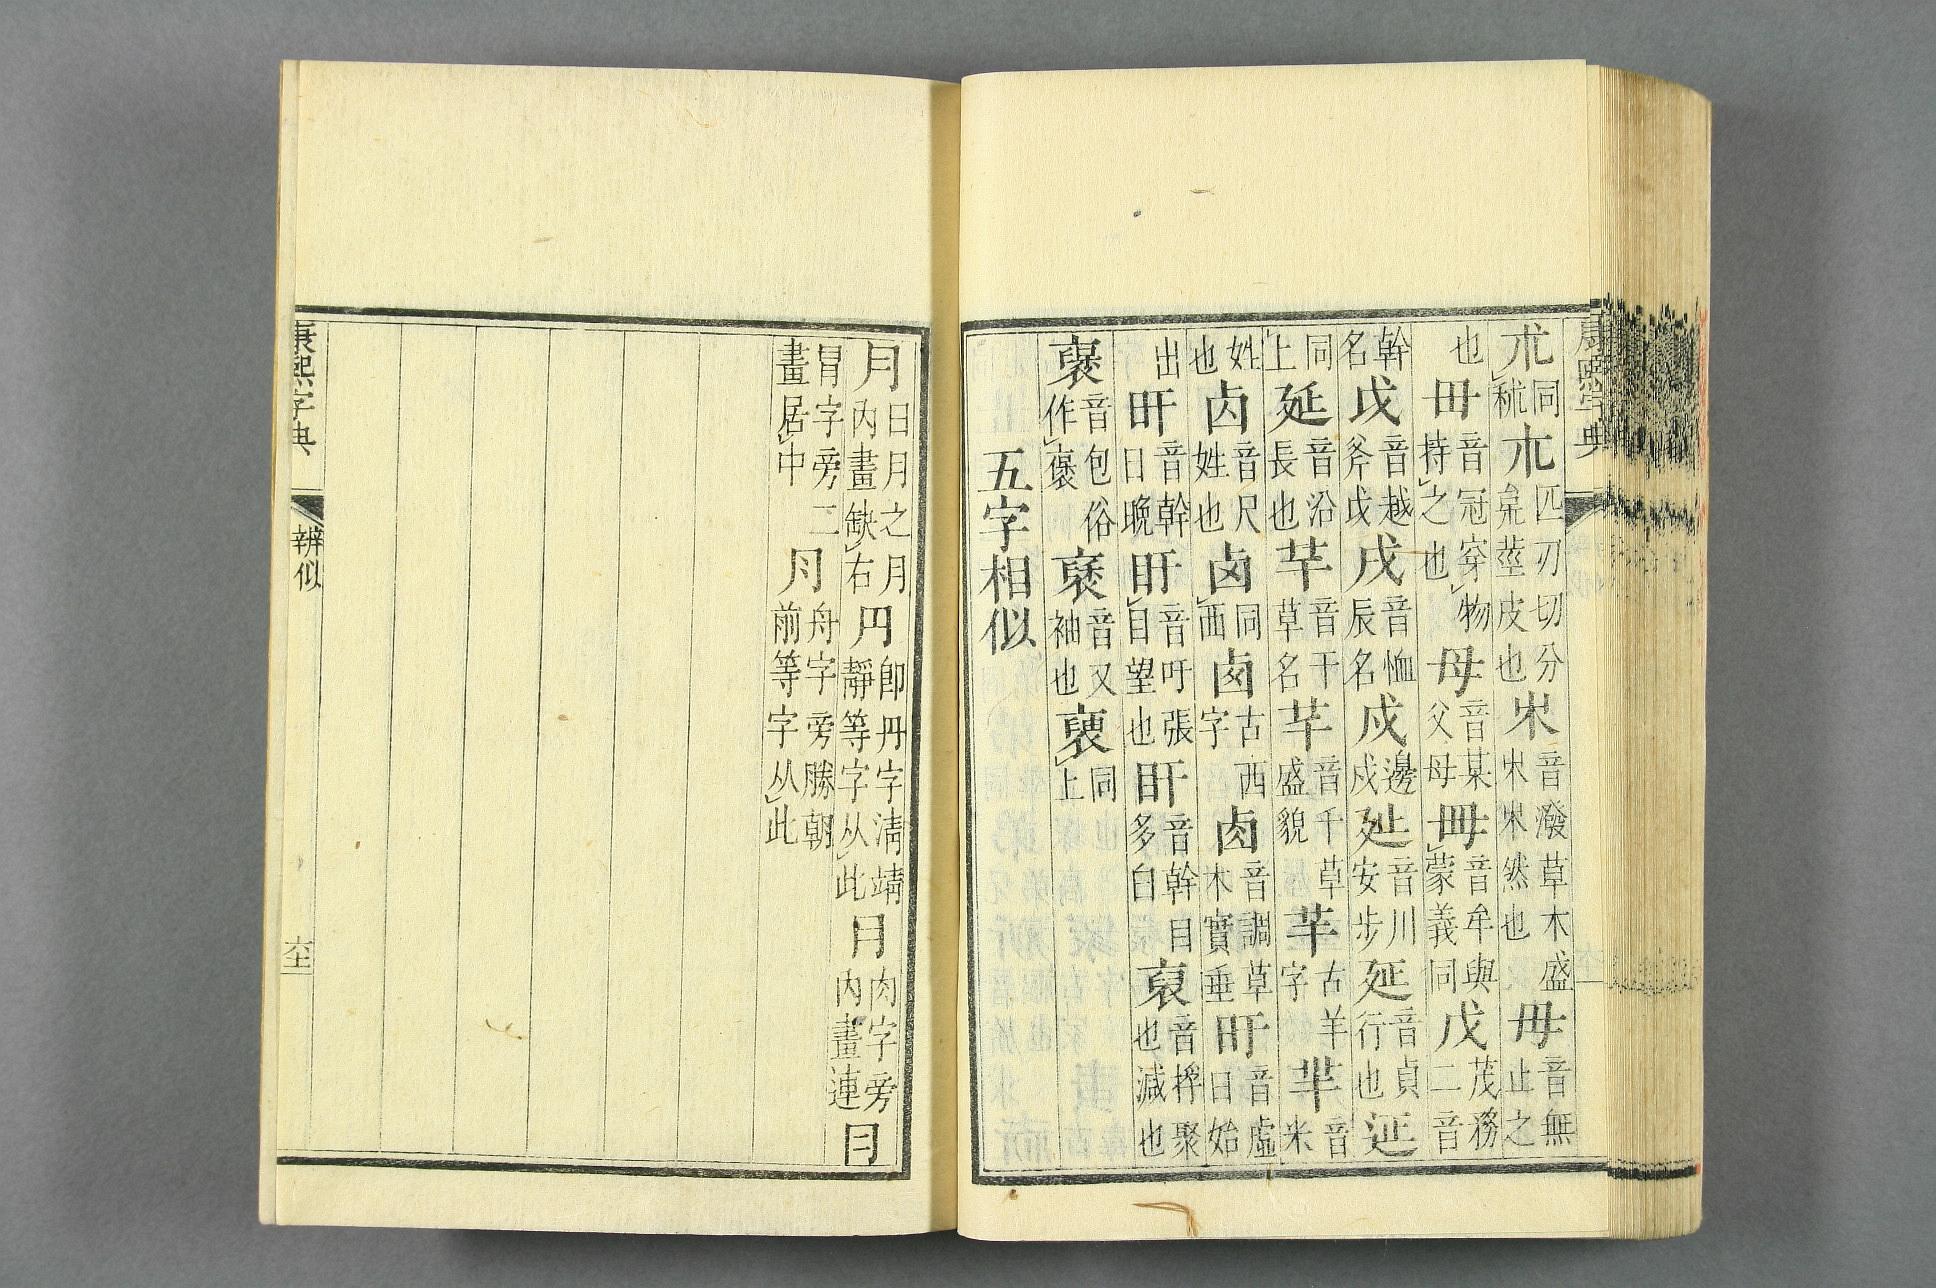 康熙字典
朮同秫𣎳匹刃切分枲莖皮也𣎵音潑草木盛𣎵𣎵然也毋音無止之
也毌音冠穿物持之也母音某父母音牟與蒙義同戊茂務二音
幹名戉音越斧戉戌音恤辰名戍邊戍㢟音川安步音貞行也
同上延音沿長也芉音干草名芊音千草盛貌芈古羊字羋音米
姓也音尺姓也同西卥古西字卣音調草木實垂旴音虛日始
出旰音幹日晚盱音吁張目望也盰音幹目多白裒音捊聚也減也
裦音包俗作褒褎音又袖也褏同上
五字相似
月日月之月內畫缺右円卽丹字清靖靜等字从此⺼肉字旁內畫連冃
冒字旁二畫居中⺝舟字旁勝朝前等字从此
康熙字典 辨似